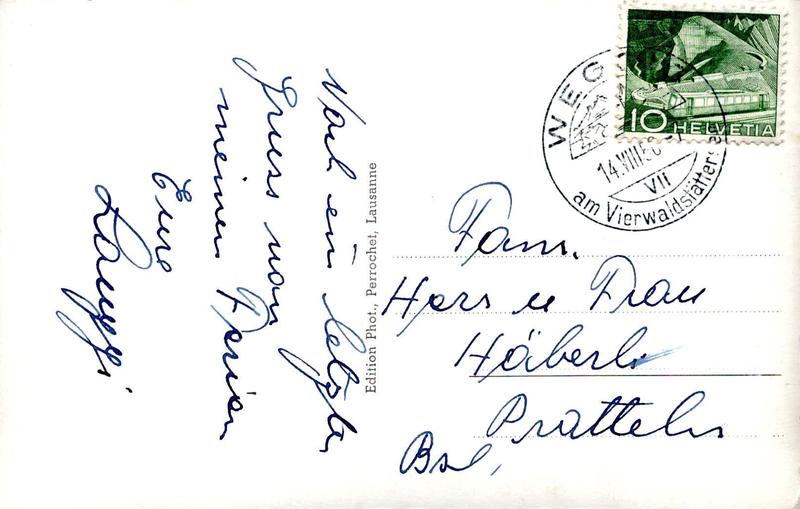 Noch ein letzter
Gruss von
meinen Ferien
Eure
Edition Phot., Perrochet, Lausanne
WEGGIS
14.VIII.58
VII
am Vierwaldstättersee
10 HELVETIA
Fam.
Hers u Frau
Häberli
Pratteln
Bsl,